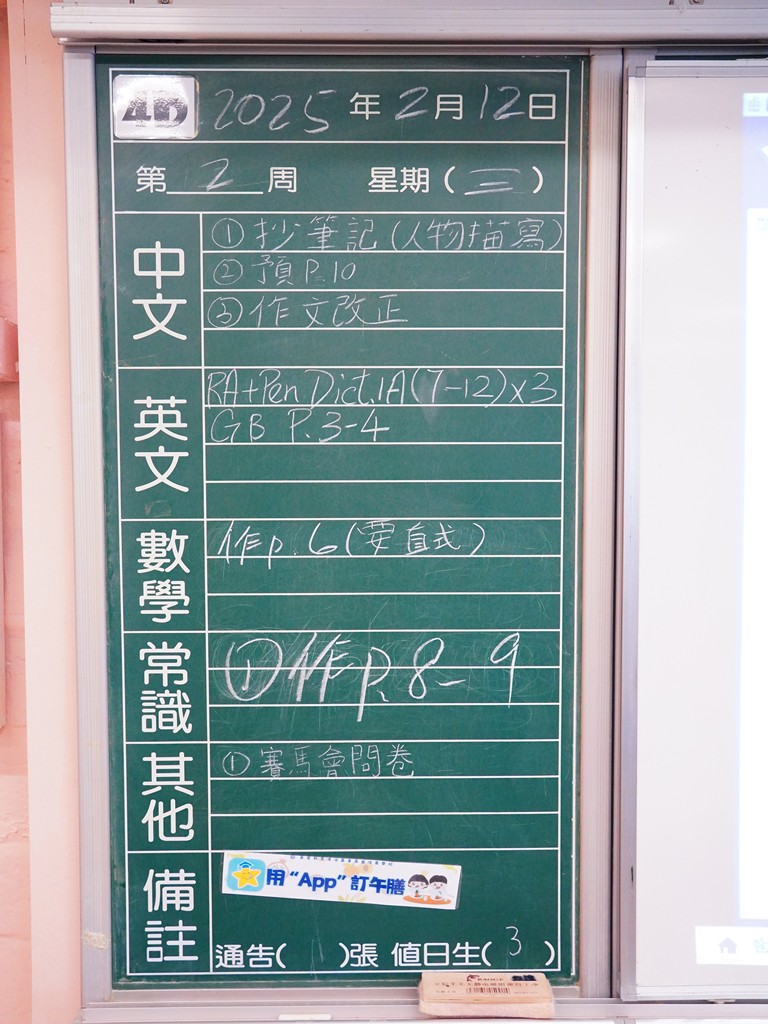 2025年2月12日
第 2 周 星期(三)
中文
①抄筆記(人物描寫)
②預P.10
③作文改正
英文
RA+Pen Dict.1A(7-12)x3
GB P.3-4
數學
作p.6(要直式)
常識
①作p.8-9
其他
①賽馬會問卷
備註
用“App”訂午膳
通告( )張 值日生( 3 )